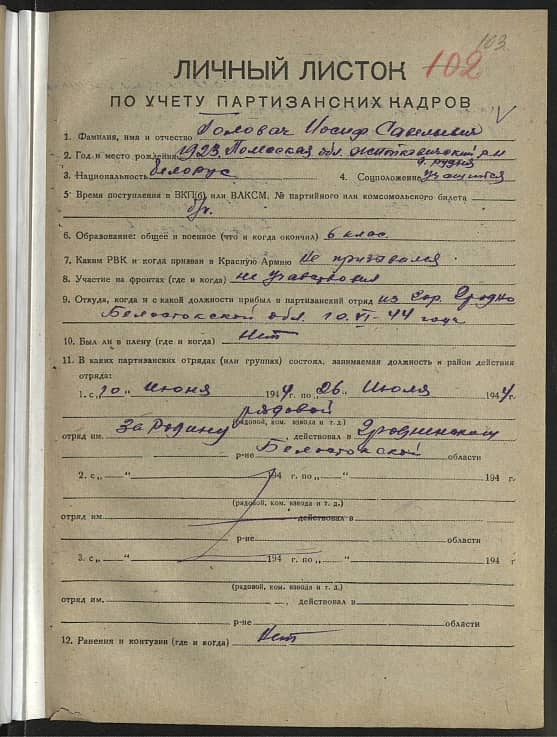 103.
102
ЛИЧНЫЙ ЛИСТОК
ПО УЧЕТУ ПАРТИЗАНСКИХ КАДРОВ
V
1. Фамилия, имя и отчество Головач Иосиф Савельевич
2. Год и место рождения 1923. Полесская обл. Житковичский р-н
д. Рудня
3. Национальность белорус 4. Соцположение учащийся
5 Время поступления в ВКП(б) или ВЛКСМ, № партийного или комсомольского билета
б/п.
6. Образование: общее и военное (что и когда окончил) 6 клас.
7. Каким РВК и когда призван в Красную Армию Не призывался
8. Участие на фронтах (где и когда) не участвовал
9. Откуда, когда и с какой должности прибыл в партизанский отряд из гор. Гродно
Белостокской обл. 10. VI-44 года
10. Был ли в плену (где и когда) Нет
11. В каких партизанских отрядах (или группах) состоял, занимаемая должность и район действия
отряда:
1. с „10 " июня 1944 г. по „26 " Июля 1944г.
рядовой
(рядовой, ком. взвода и т. д.)
отряд им. За Родину , действовал в Гродненском
р-не Белостокской области
2. с „ " 194 г. по „ " 194 г.
(рядовой, ком. взвода и т. д.)
отряд им. действовал в
р-не области
3. с „ " 194 г. по „ " 194 г.
(рядовой, ком. взвода и т. д.)
отряд им. , действовал в
р-не области
12. Ранения и контузии (где и когда) Нет